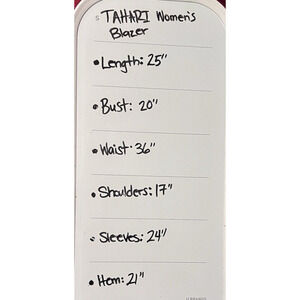 TAHARI Women's
Blazer
• Length: 25"
• Bust: 20"
• Waist: 36"
• Shoulders: 17"
• Sleeves: 24"
• Hem: 21"